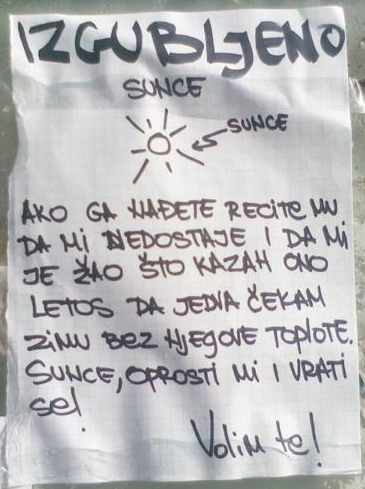 IZGUBLJENO
SUNCE
SUNCE
AKO GA NAĐETE RECITE MU
DA MI NEDOSTAJE I DA MI
JE ŽAO ŠTO KAZAH ONO
LETOS DA JEDVA ČEKAM
ZIMU BEZ NJEGOVE TOPLOTE.
SUNCE, OPROSTI MI I VRATI
SE!
Volim te!